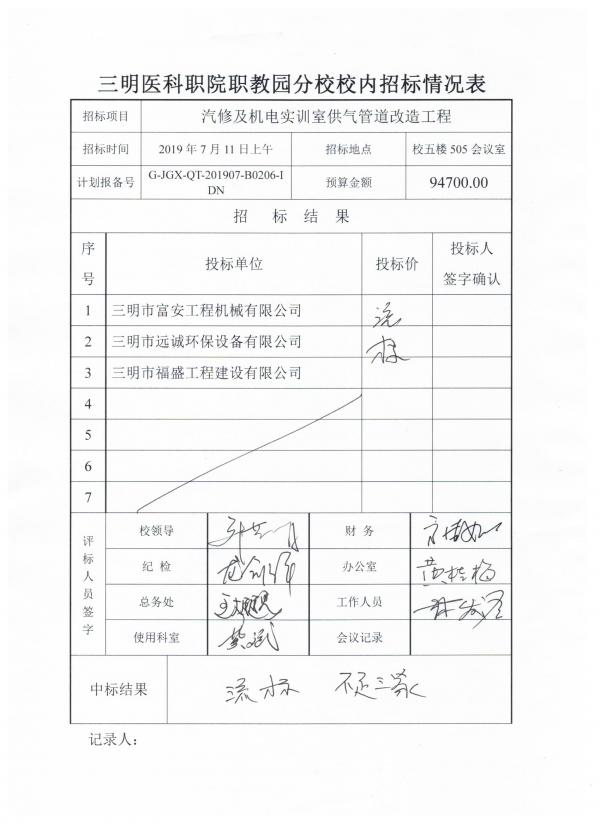 三明医科职院职教园分校校内招标情况表
招标项目 汽修及机电实训室供气管道改造工程
招标时间 2019 年 7 月 11 日上午 招标地点 校五楼 505 会议室
计划报备号 G-JGX-QT-201907-B0206-I
DN 预算金额 94700.00
招 标 结 果
序
号 投标单位 投标价 投标人
签字确认
1 三明市富安工程机械有限公司 流
2 三明市远诚环保设备有限公司 标
3 三明市福盛工程建设有限公司
4
5
6
7
评标人员签字
校领导 财 务
纪 检 办公室 黄桂梅
总务处 工作人员
使用科室 会议记录
中标结果 流标 不足三家
记录人：